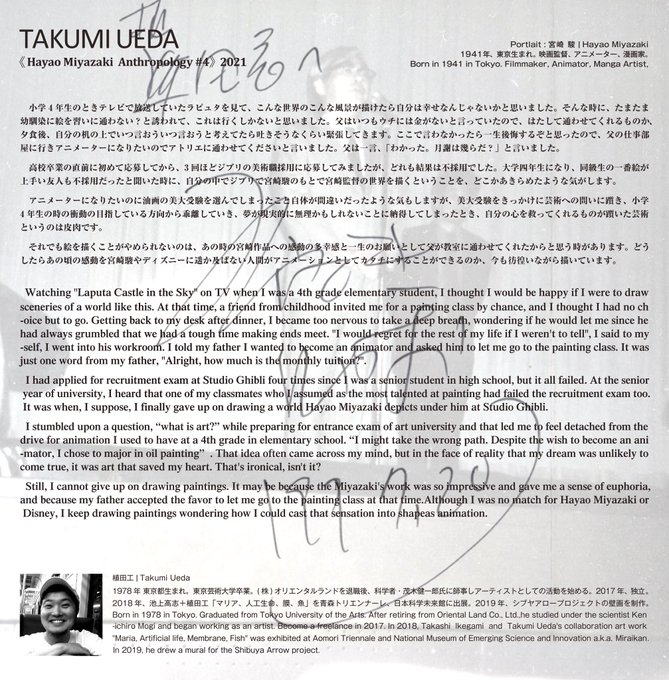 TAKUMI UEDA
《 Hayao Miyazaki Anthropology #4》 2021
Portlait : 宮崎 駿 | Hayao Miyazaki
1941年、東京生まれ。映画監督、アニメーター、漫画家。
Born in 1941 in Tokyo. Filmmaker, Animator, Manga Artist.
小学4年生のときテレビで放送していたラピュタを見て、こんな世界のこんな風景が描けたら自分は幸せなんじゃないかと思いました。そんな時に、たまたま
幼馴染に絵を習いに通わない?と誘われて、これは行くしかないと思いました。父はいつもウチには金がないと言っていたので、はたして通わせてくれるものか、
夕食後、自分の机の上でいつ言おういつ言おうと考えてたら吐きそうなくらい緊張してきます。ここで言わなかったら一生後悔するぞと思ったので、父の仕事部
屋に行きアニメーターになりたいのでアトリエに通わせてくださいと言いました。父は一言、「わかった。月謝は幾らだ?」と言いました。
高校卒業の直前に初めて応募してから、3回ほどジブリの美術職採用に応募してみましたが、どれも結果は不採用でした。大学四年生になり、同級生の一番絵が
上手い友人も不採用だったと聞いた時に、自分の中でジブリで宮崎駿のもとで宮崎監督の世界を描くということを、どこかあきらめたような気がします。
アニメーターになりたいのに油画の美大受験を選んでしまったこと自体が間違いだったような気もしますが、美大受験をきっかけに芸術への問いに躓き、小学
4年生の時の衝動の目指している方向から乖離していき、夢が現実的に無理かもしれないことに納得してしまったとき、自分の心を救ってくれるものが躓いた芸術
というのは皮肉です。
それでも絵を描くことがやめられないのは、あの時の宮崎作品への感動の多幸感と一生のお願いとして父が教室に通わせてくれたからと思う時があります。どう
したらあの頃の感動を宮崎駿やディズニーに遥か及ばない人間がアニメーションとしてカタチにすることができるのか、今も彷徨いながら描いています。
Watching "Laputa Castle in the Sky" on TV when I was a 4th grade elementary student, I thought I would be happy if I were to draw
sceneries of a world like this. At that time, a friend from childhood invited me for a painting class by chance, and I thought I had no ch
-oice but to go. Getting back to my desk after dinner, I became too nervous to take a deep breath, wondering if he would let me since he
had always grumbled that we had a tough time making ends meet. "I would regret for the rest of my life if I weren't to tell", I said to my
-self, I went into his workroom. I told my father I wanted to become an animator and asked him to let me go to the painting class. It was
just one word from my father, "Alright, how much is the monthly tuition?".
I had applied for recruitment exam at Studio Ghibli four times since I was a senior student in high school, but it all failed. At the senior
year of university, I heard that one of my classmates who I assumed as the most talented at painting had failed the recruitment exam too.
It was when, I suppose, I finally gave up on drawing a world Hayao Miyazaki depicts under him at Studio Ghibli.
I stumbled upon a question, “what is art?” while preparing for entrance exam of art university and that led me to feel detached from the
drive for animation I used to have at a 4th grade in elementary school. “I might take the wrong path. Despite the wish to become an ani
-mator, I chose to major in oil painting” . That idea often came across my mind, but in the face of reality that my dream was unlikely to
come true, it was art that saved my heart. That's ironical, isn't it?
Still, I cannot give up on drawing paintings. It may be because the Miyazaki's work was so impressive and gave me a sense of euphoria,
and because my father accepted the favor to let me go to the painting class at that time.Although I was no match for Hayao Miyazaki or
Disney, I keep drawing paintings wondering how I could cast that sensation into shapeas animation.
1997.7.20
植田工 | Takumi Ueda
1978年 東京都生まれ。東京芸術大学卒業。(株) オリエンタルランドを退職後、科学者・茂木健一郎氏に師事しアーティストとしての活動を始める。2017年、独立。
2018年、池上高志+植田工「マリア、人工生命、膜、魚」を青森トリエンナーレ、日本科学未来館に出展。2019年、シブヤアロープロジェクトの壁画を制作。
Born in 1978 in Tokyo. Graduated from Tokyo University of the Arts. After retiring from Oriental Land Co., Ltd.,he studied under the scientist Ken
-ichiro Mogi and began working as an artist. Become a freelance in 2017. In 2018, Takashi Ikegami and Takumi Ueda's collaboration art work
"Maria, Artificial life, Membrane, Fish" was exhibited at Aomori Triennale and National Museum of Emerging Science and Innovation a.k.a. Miraikan.
In 2019, he drew a mural for the Shibuya Arrow project.